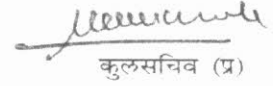 कुलसचिव (प्र)